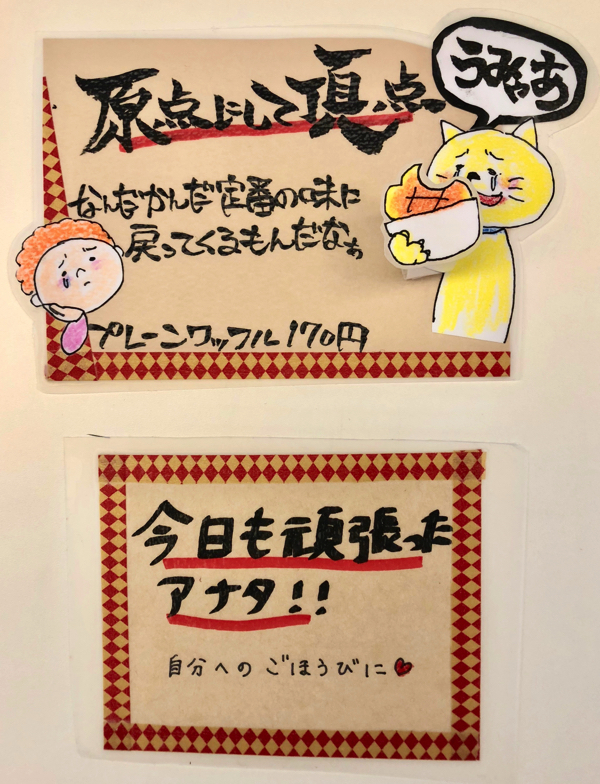 うみゃあ
原点にして頂点
なんだかんだ定番の味に
戻ってくるもんだなぁ
プレーンワッフル170円
今日も頑張った
アナタ!!
自分へのごほうびに